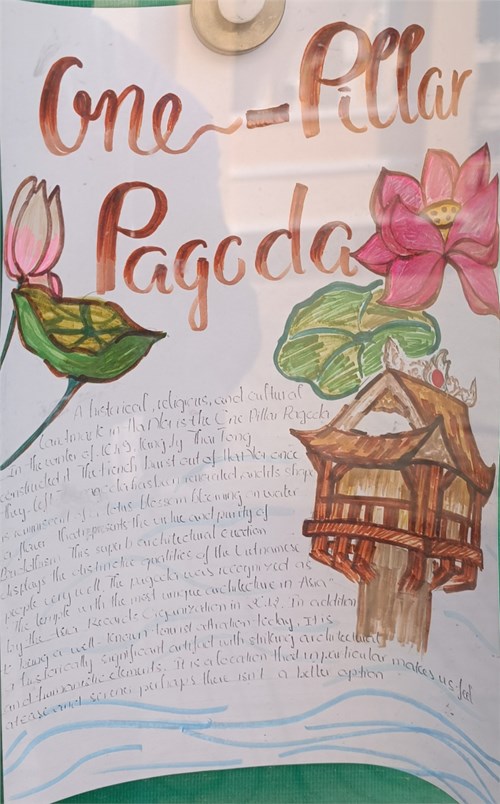 One-Pillar
Pagoda
A historical, religious, and cultural
landmark in HaNoi is the One-Pillar Pagoda
in the winter of 1049, King Ly Thai Tong
constructed it. The French burst out of HaNoi once
they left. pagoda has been renovated, and its shape
is reminiscent of a lotus blossom blooming on water
a flower that represents the virtue and purity of
Buddhism. This superb architectural creation
displays the distinctive qualities of the Vietnamese
people very well. The pagoda was recognized as
"The temple with the most unique architecture in Asia"
by the Asia Records Organization in 2012. In addition
to being a well-known tourist attraction today, It is
a historically significant artifact with striking architectural
and humanistic elements. It is a location that in particular makes us feel
at ease and serene, perhaps there isn't a better option